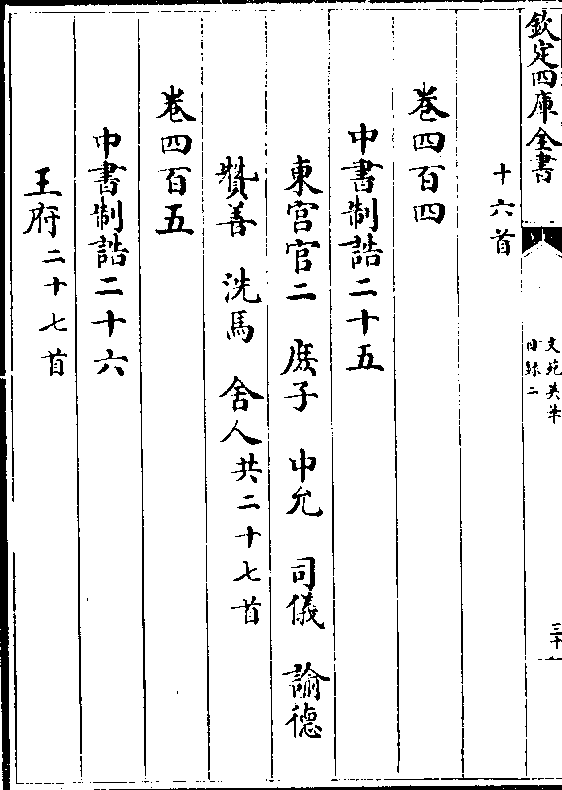 欽定四庫全書
文苑英華
目録二
三十
十六首
卷四百四
中書制誥二十五
東宫官二　庶子　中允　司儀　諭徳
贊善　洗馬　舍人共二十七首
卷四百五
中書制誥二十六
王府二十七首